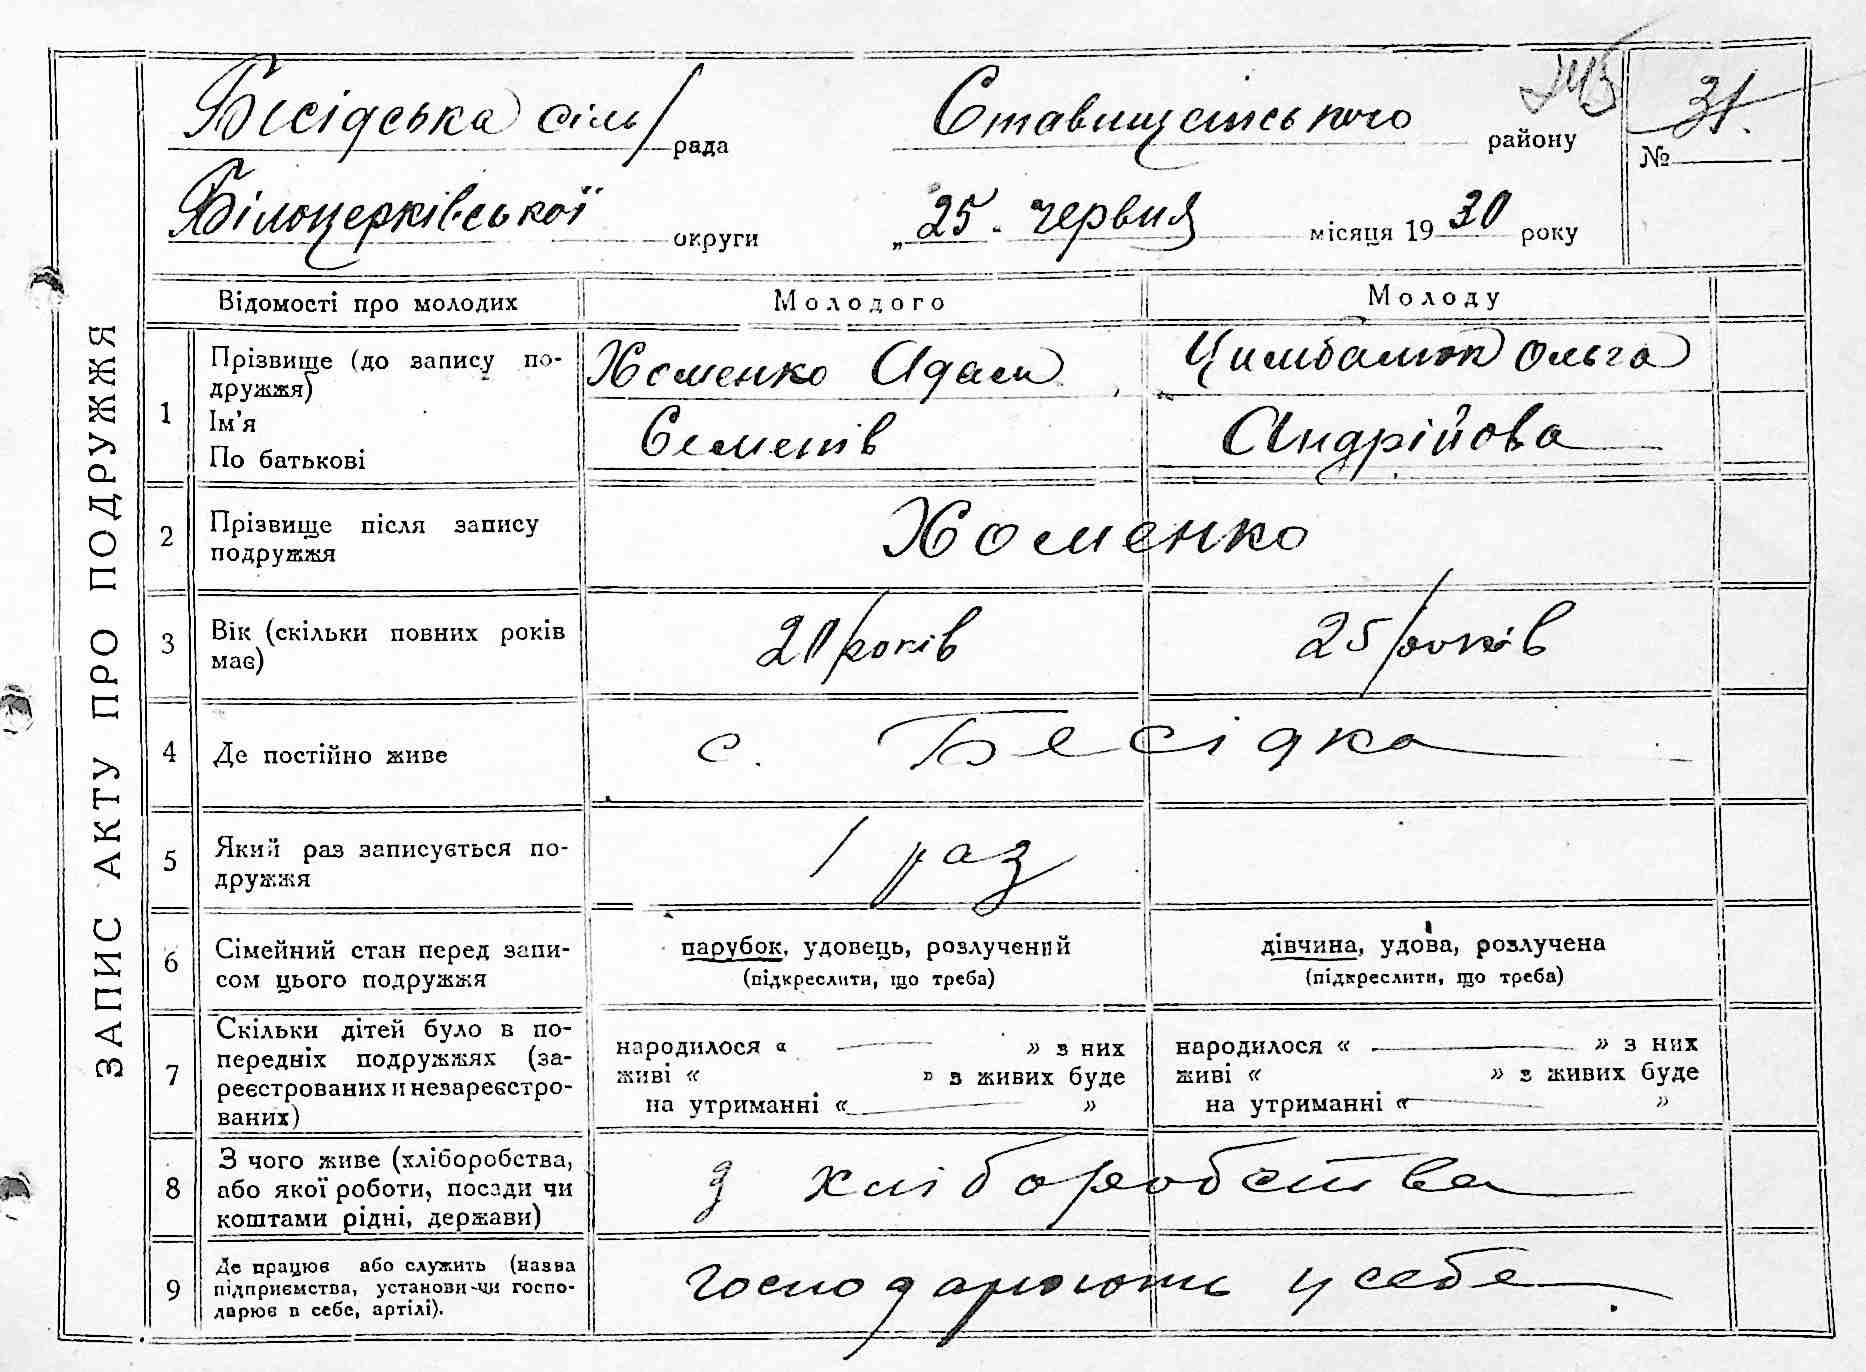 ЗАПИС АКТУ ПРО ПОДРУЖЖЯ
Бесідська сіль/ рада Ставищенського району № 31.
Білоцерківської округи „25. червня місяця 1930 року
Відомості про молодих Молодого Молоду
1 Прізвище (до запису по-
дружжя)
Ім'я
По батькові
Хоменко Адам
Семенів
Цимбалюк Ольга
Андрійова
2 Прізвище після запису
подружжя
Хоменко
3 Вік (скільки повних років
має)
20/років 25/років
4 Де постійно живе с. Бесідка
5 Який раз записується по-
дружжя
1 раз
6 Сімейний стан перед запи-
сом цього подружжя
парубок, удовець, розлучений
(підкреслити, що треба)
дівчина, удова, розлучена
(підкреслити, що треба)
7 Скільки дітей було в по-
передніх подружжях (за-
реєстрованих и незареєстро-
ваних)
народилося « — » з них
живі « » з живих буде
на утриманні «— »
народилося « — » з них
живі « » з живих буде
на утриманні «— »
8 З чого живе (хліборобства,
або якої роботи, посади чи
коштами рідні, держави)
з хліборобства
9 Де працює або служить (назва
підприємства, установи чи госпо-
дарює в себе, артілі).
господарюють у себе.